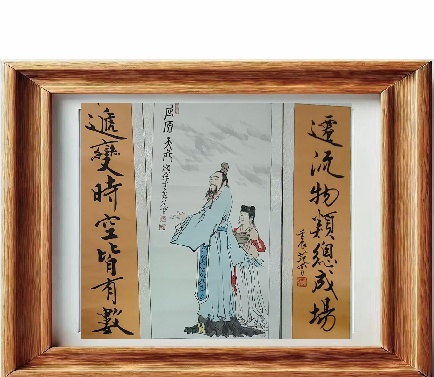 遞變時空皆有數
屈原
遷流物類總成場